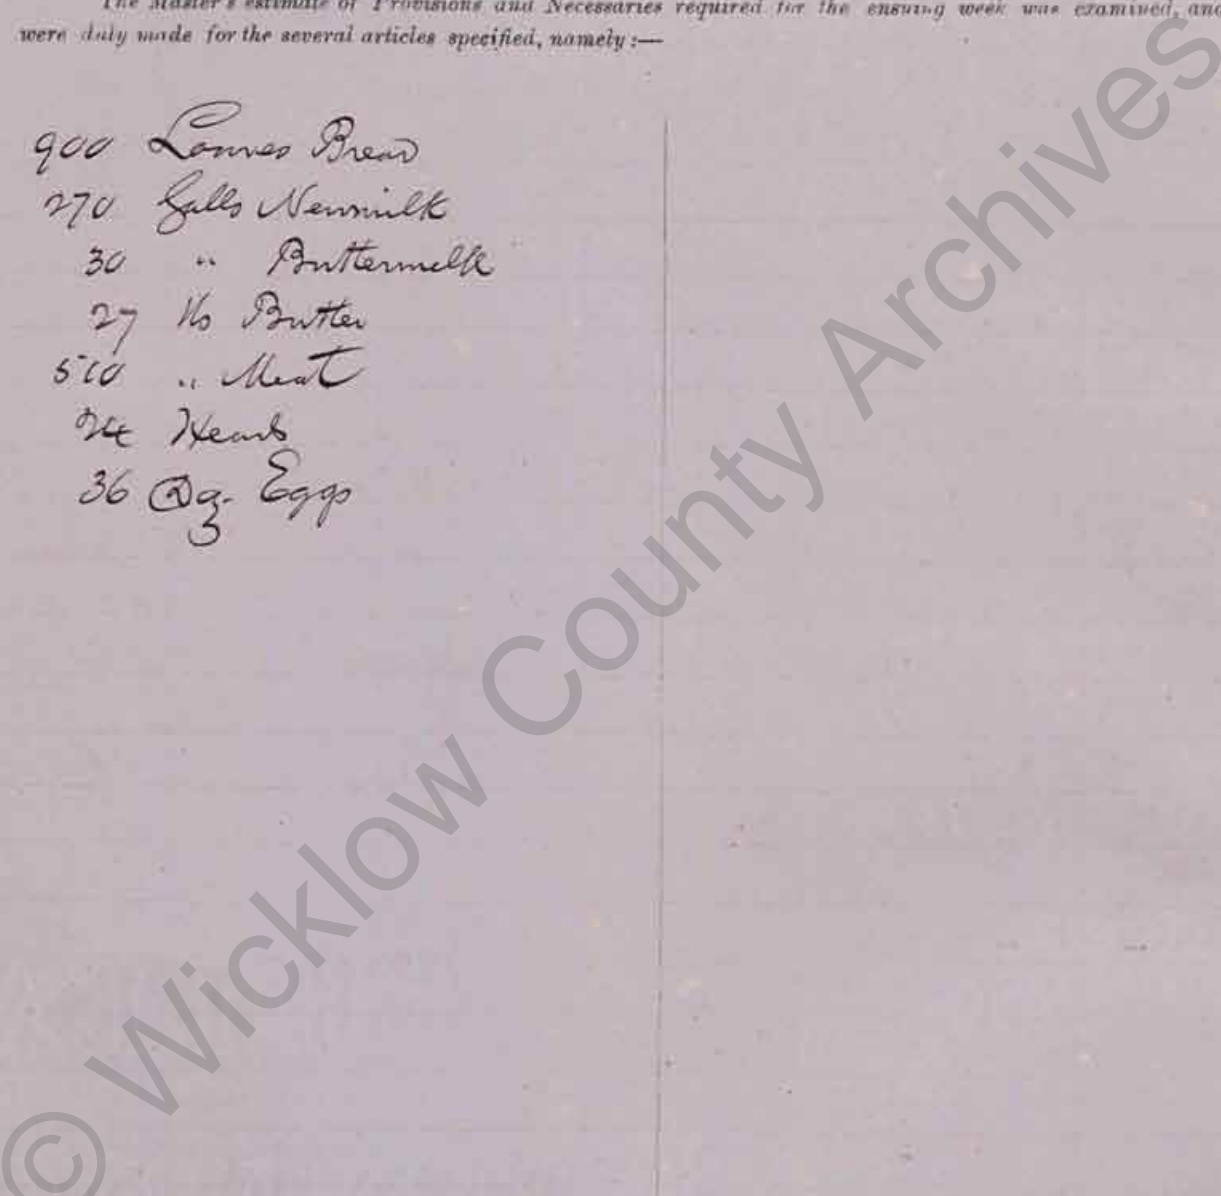 The Master's estimate of Provisions and Necessaries required for the ensuing week was examined, and
were duly made for the several articles specified, namely:—
900 Loaves Bread
270 Galls Newmilk
30 " Buttermilk
27 lbs Butter
510 " Meat
24 Heads
36 Doz. Eggs
© Wicklow County Archives